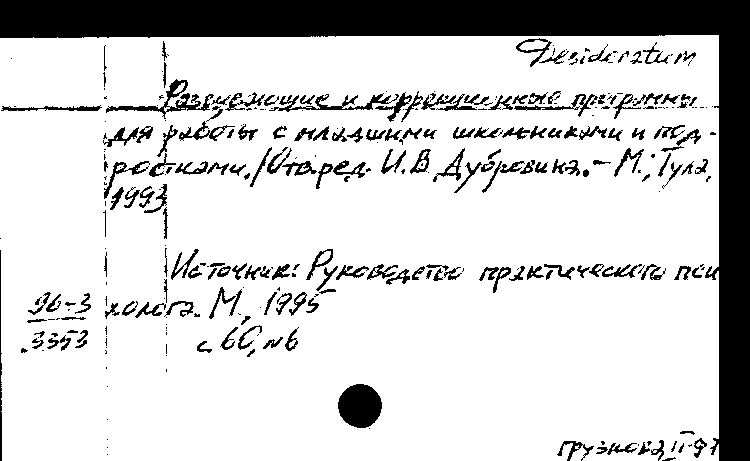 Desideratum
Развивающие и коррекционные программы
для работы с младшими школьниками и под-
ростками. / Отв. ред. И.В. Дубровина. – М.; Тула,
1993
Источник: Руководство практического пси
96-3 холога. М., 1995
3353 с 60, №6
грузнова, II-97